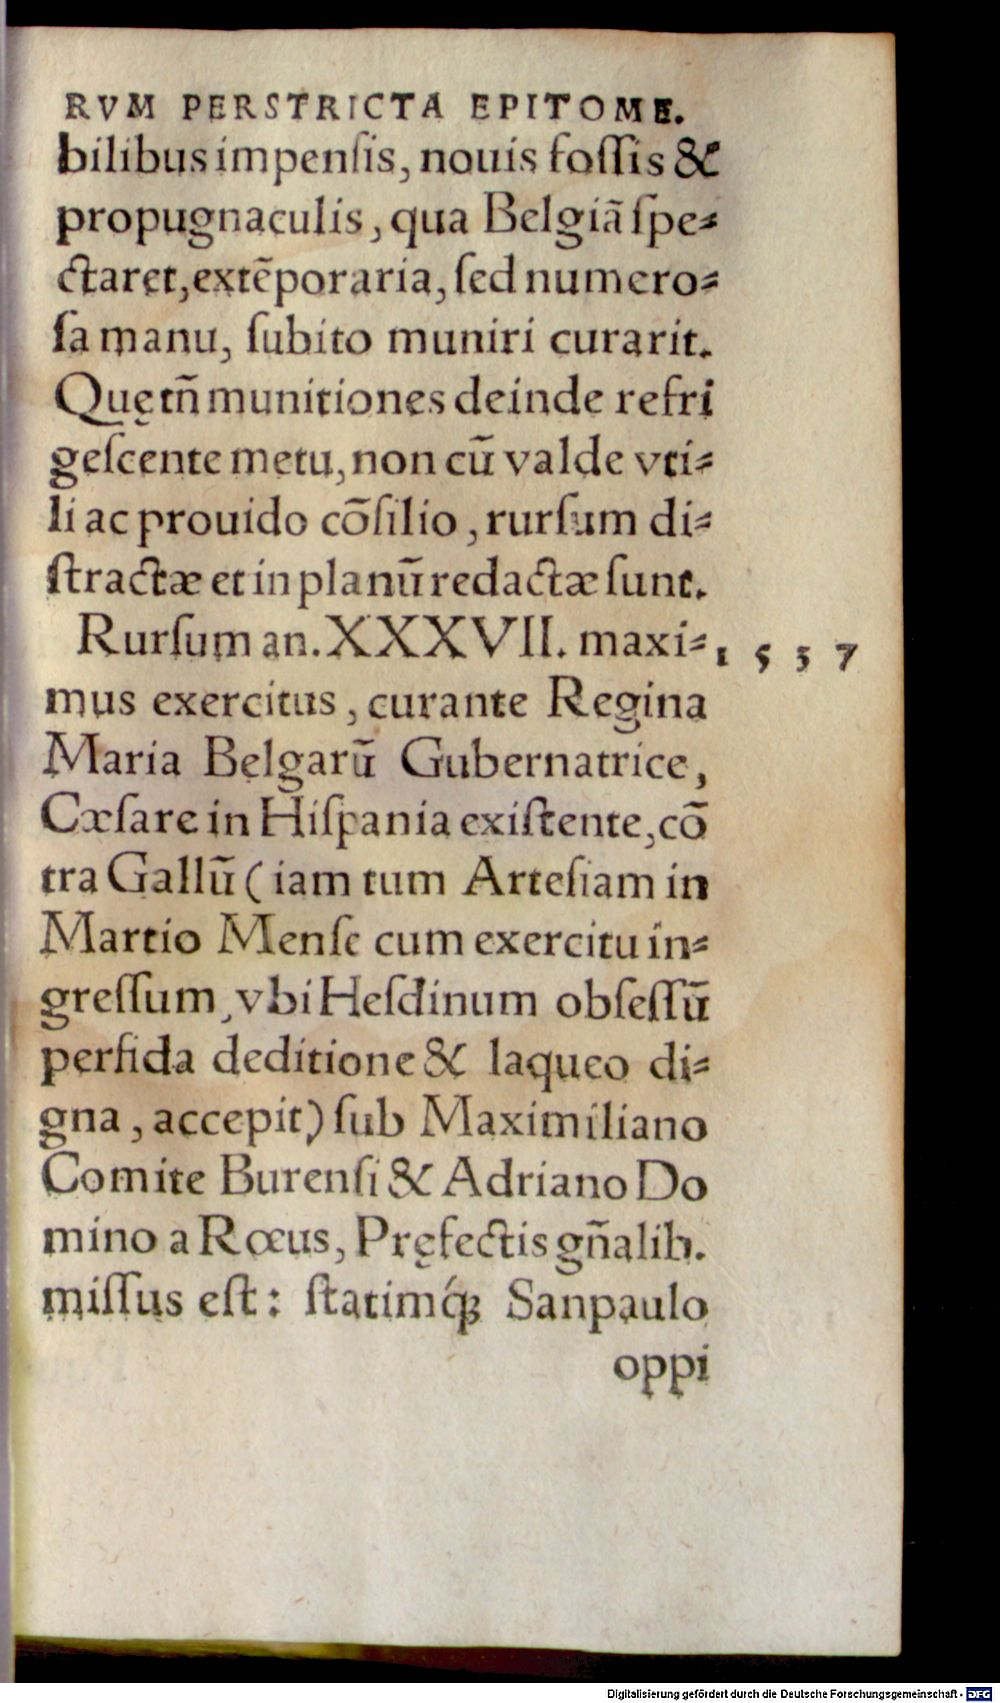 RVM PERSTRICTA EPITOME.
bilibus impenſis, nouis foſſis &
propugnaculis, qua Belgiã ſpe⸗
ctaret, extẽporaria, ſed numero⸗
ſa manu, ſubito muniri curarit.
Quę tñ munitiones deinde refri
geſcente metu, non cũ valde vti⸗
li ac prouido cõſilio, rurſum di⸗
ſtractæ et in planũ redactæ ſunt.
Rurſum an. XXXVII. maxi⸗ 1 5 3 7
mus exercitus, curante Regina
Maria Belgarũ Gubernatrice,
Cæſare in Hiſpania exiſtente, cõ
tra Gallũ (iam tum Arteſiam in
Martio Menſe cum exercitu in⸗
greſſum, vbi Heſdinum obſeſſũ
perfida deditione & laqueo di⸗
gna, accepit) ſub Maximiliano
Comite Burenſi & Adriano Do
mino a Rœus, Pręfectis gñalib.
miſſus eſt: ſtatimq́; Sanpaulo
oppi
Digitalisierung gefördert durch die Deutsche Forschungsgemeinschaft - DFG